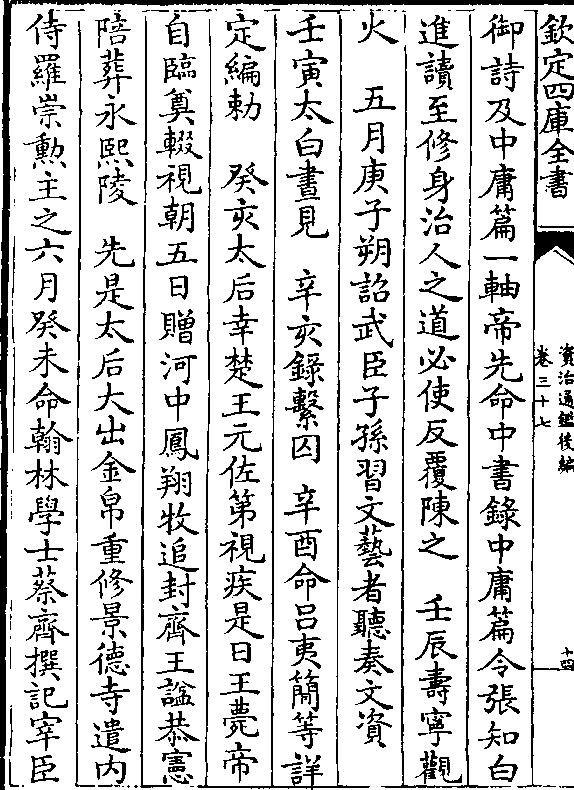 欽定四庫全書
資治通鑑後編
卷三十七
十四
御詩及中庸篇一軸帝先命中書錄中庸篇令張知白
進讀至修身治人之道必使反覆陳之　壬辰壽寧觀
火　五月庚子朔詔武臣子孫習文藝者聽奏文資
壬寅太白晝見　辛亥錄繫囚　辛酉命吕夷簡等詳
定編勅　癸亥太后幸楚王元佐第視疾是日王薨帝
自臨奠輟視朝五日贈河中鳳翔牧追封齊王謚恭憲
陪葬永熙陵　先是太后大出金帛重修景德寺遣内
侍羅崇勲主之六月癸未命翰林學士蔡齊撰記宰臣